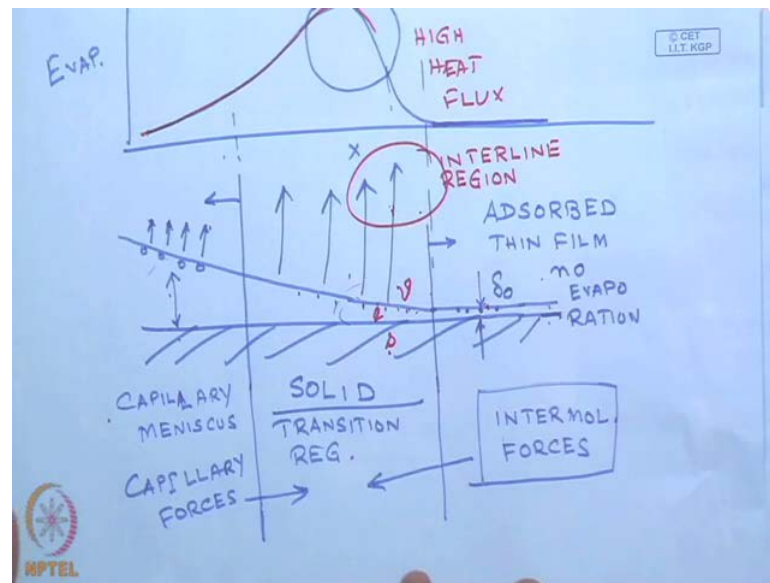 EVAP.
HIGH
HEAT
FLUX
© CET
I.I.T. KGP
x
INTERLINE
REGION
ADSORBED
THIN FILM
no
EVAPO
RATION
δ₀
v
l
s
CAPILLARY
MENISCUS
SOLID
TRANSITION
REG.
INTERMOL.
FORCES
CAPILLARY
FORCES
NPTEL